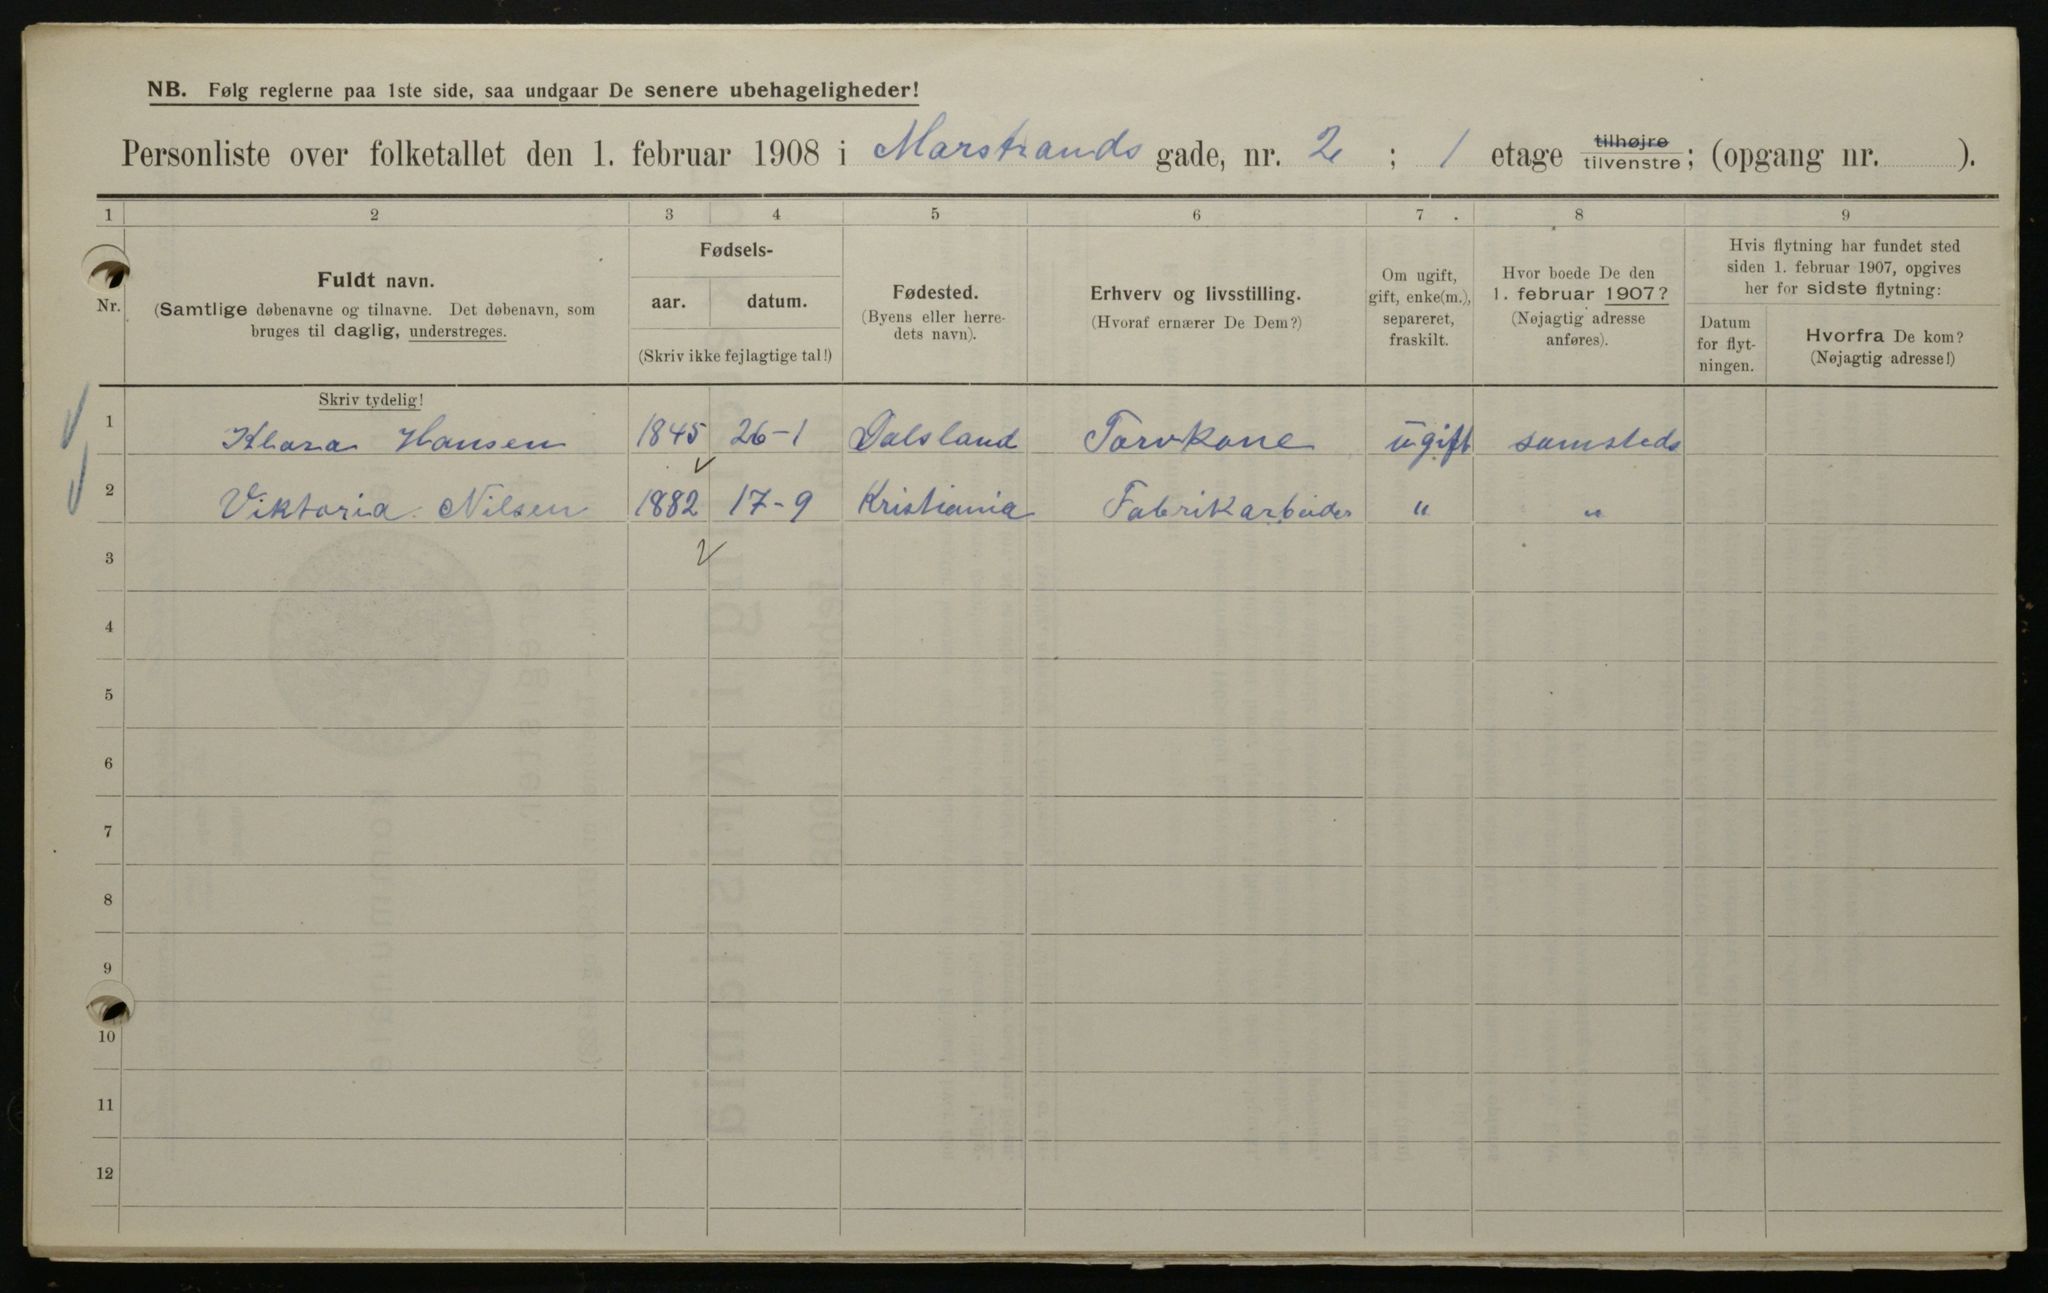 NB. Følg reglerne paa 1ste side, saa undgaar De senere ubehageligheder!
Personliste over folketallet den 1. februar 1908 i Marstrands gade, nr. 2 ; 1 etage tilhøjre tilvenstre; (opgang nr. ).
1 2 3 4 5 6 7 8 9
Nr.
Fuldt navn.
(Samtlige døbenavne og tilnavne. Det døbenavn, som
bruges til daglig, understreges.
Fødsels-
aar. datum.
(Skriv ikke fejlagtige tal!)
Fødested.
(Byens eller herre-
dets navn).
Erhverv og livsstilling.
(Hvoraf ernærer De Dem?)
Om ugift,
gift, enke(m.),
separeret,
fraskilt.
Hvor boede De den
1. februar 1907?
(Nøjagtig adresse
anføres).
Hvis flytning har fundet sted
siden 1. februar 1907, opgives
her for sidste flytning:
Datum
for flyt-
ningen.
Hvorfra De kom?
(Nøjagtig adresse!)
Skriv tydelig!
1 Klara Hansen 1845 26-1 Dalsland Torvkone ugift samsteds
2 Viktoria Nilsen 1882 17-9 Kristiania Fabrikarbeider " "
3
4
5
6
7
8
9
10
11
12